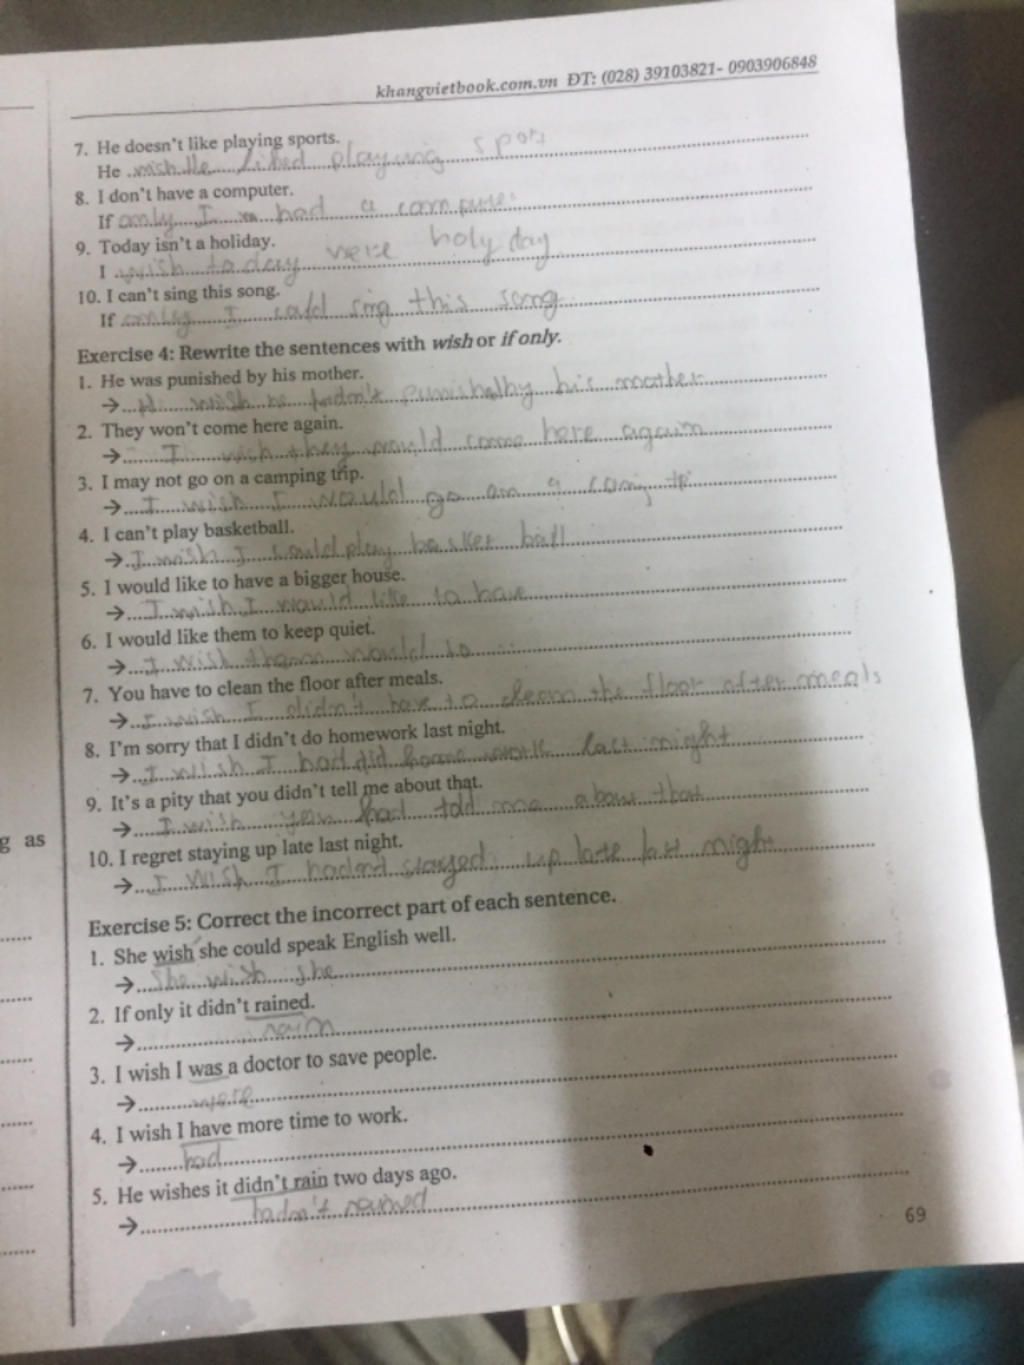 khangvietbook.com.vn ĐT: (028) 39103821- 0903906848
7. He doesn't like playing sports.
He wish He liked playing spot
8. I don't have a computer.
If only I had a compure
9. Today isn't a holiday.
I wish today were holy day
10. I can't sing this song.
If only I could sing this song
Exercise 4: Rewrite the sentences with wish or if only.
1. He was punished by his mother.
→ H wish he hadn't punished by his mother
2. They won't come here again.
→ I wish they would come here again
3. I may not go on a camping trip.
→ I wish I would go on a
4. I can't play basketball.
→ I wish I could play basket ball
5. I would like to have a bigger house.
→ I wish I would like to have
6. I would like them to keep quiet.
→ I wish them would to
7. You have to clean the floor after meals.
→ I wish I didn't have to clean the floor after meals
8. I'm sorry that I didn't do homework last night.
→ I wish I had did home work last night
9. It's a pity that you didn't tell me about that.
→ I wish you had told me about that
g as
10. I regret staying up late last night.
→ I wish I hadn't stayed up late last night
Exercise 5: Correct the incorrect part of each sentence.
1. She wish she could speak English well.
→ She wish she
2. If only it didn't rained.
→ rain
3. I wish I was a doctor to save people.
→ were
4. I wish I have more time to work.
→ had
5. He wishes it didn't rain two days ago.
→ hadn't rained
69